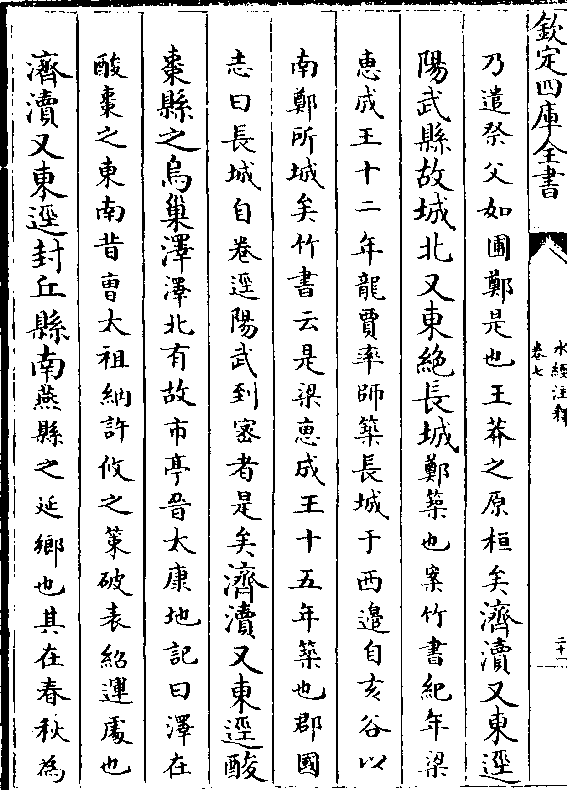 欽定四庫全書
水經注釋
卷七
二十一
乃遣祭父如圃鄭是也王莽之原桓矣濟瀆又東逕
陽武縣故城北又東絶長城鄭築也案竹書紀年梁
恵成王十二年龍賈率師築長城于西邉自亥谷以
南鄭所城矣竹書云是梁恵成王十五年築也郡國
志曰長城自卷逕陽武到宻者是矣濟瀆又東逕酸
棗縣之烏巢澤澤北有故市亭晉太康地記曰澤在
酸棗之東南昔曹太祖納許攸之策破袁紹運處也
濟瀆又東逕封丘縣南燕縣之延鄉也其在春秋為